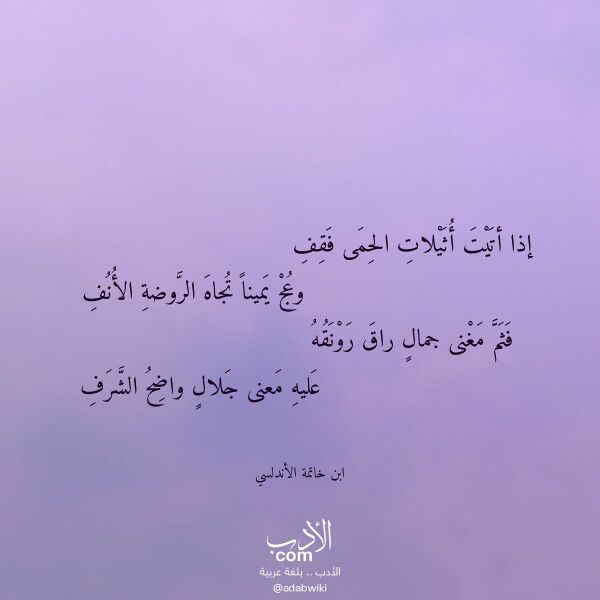 إذا أتَيْتَ أُثَيْلاتِ الحِمَى فَقِفِ
وعُجْ يَميناً تُجاهَ الرَّوضةِ الأُنُفِ
فَثَمَّ مَغْنى جمالٍ راقَ رَوْنَقُهُ
عَليهِ مَعنى جَلالٍ واضِحُ الشَّرَفِ
ابن خاتمة الأندلسي
الأدب
com
الأدب .. بلغة عربية
@adabwiki